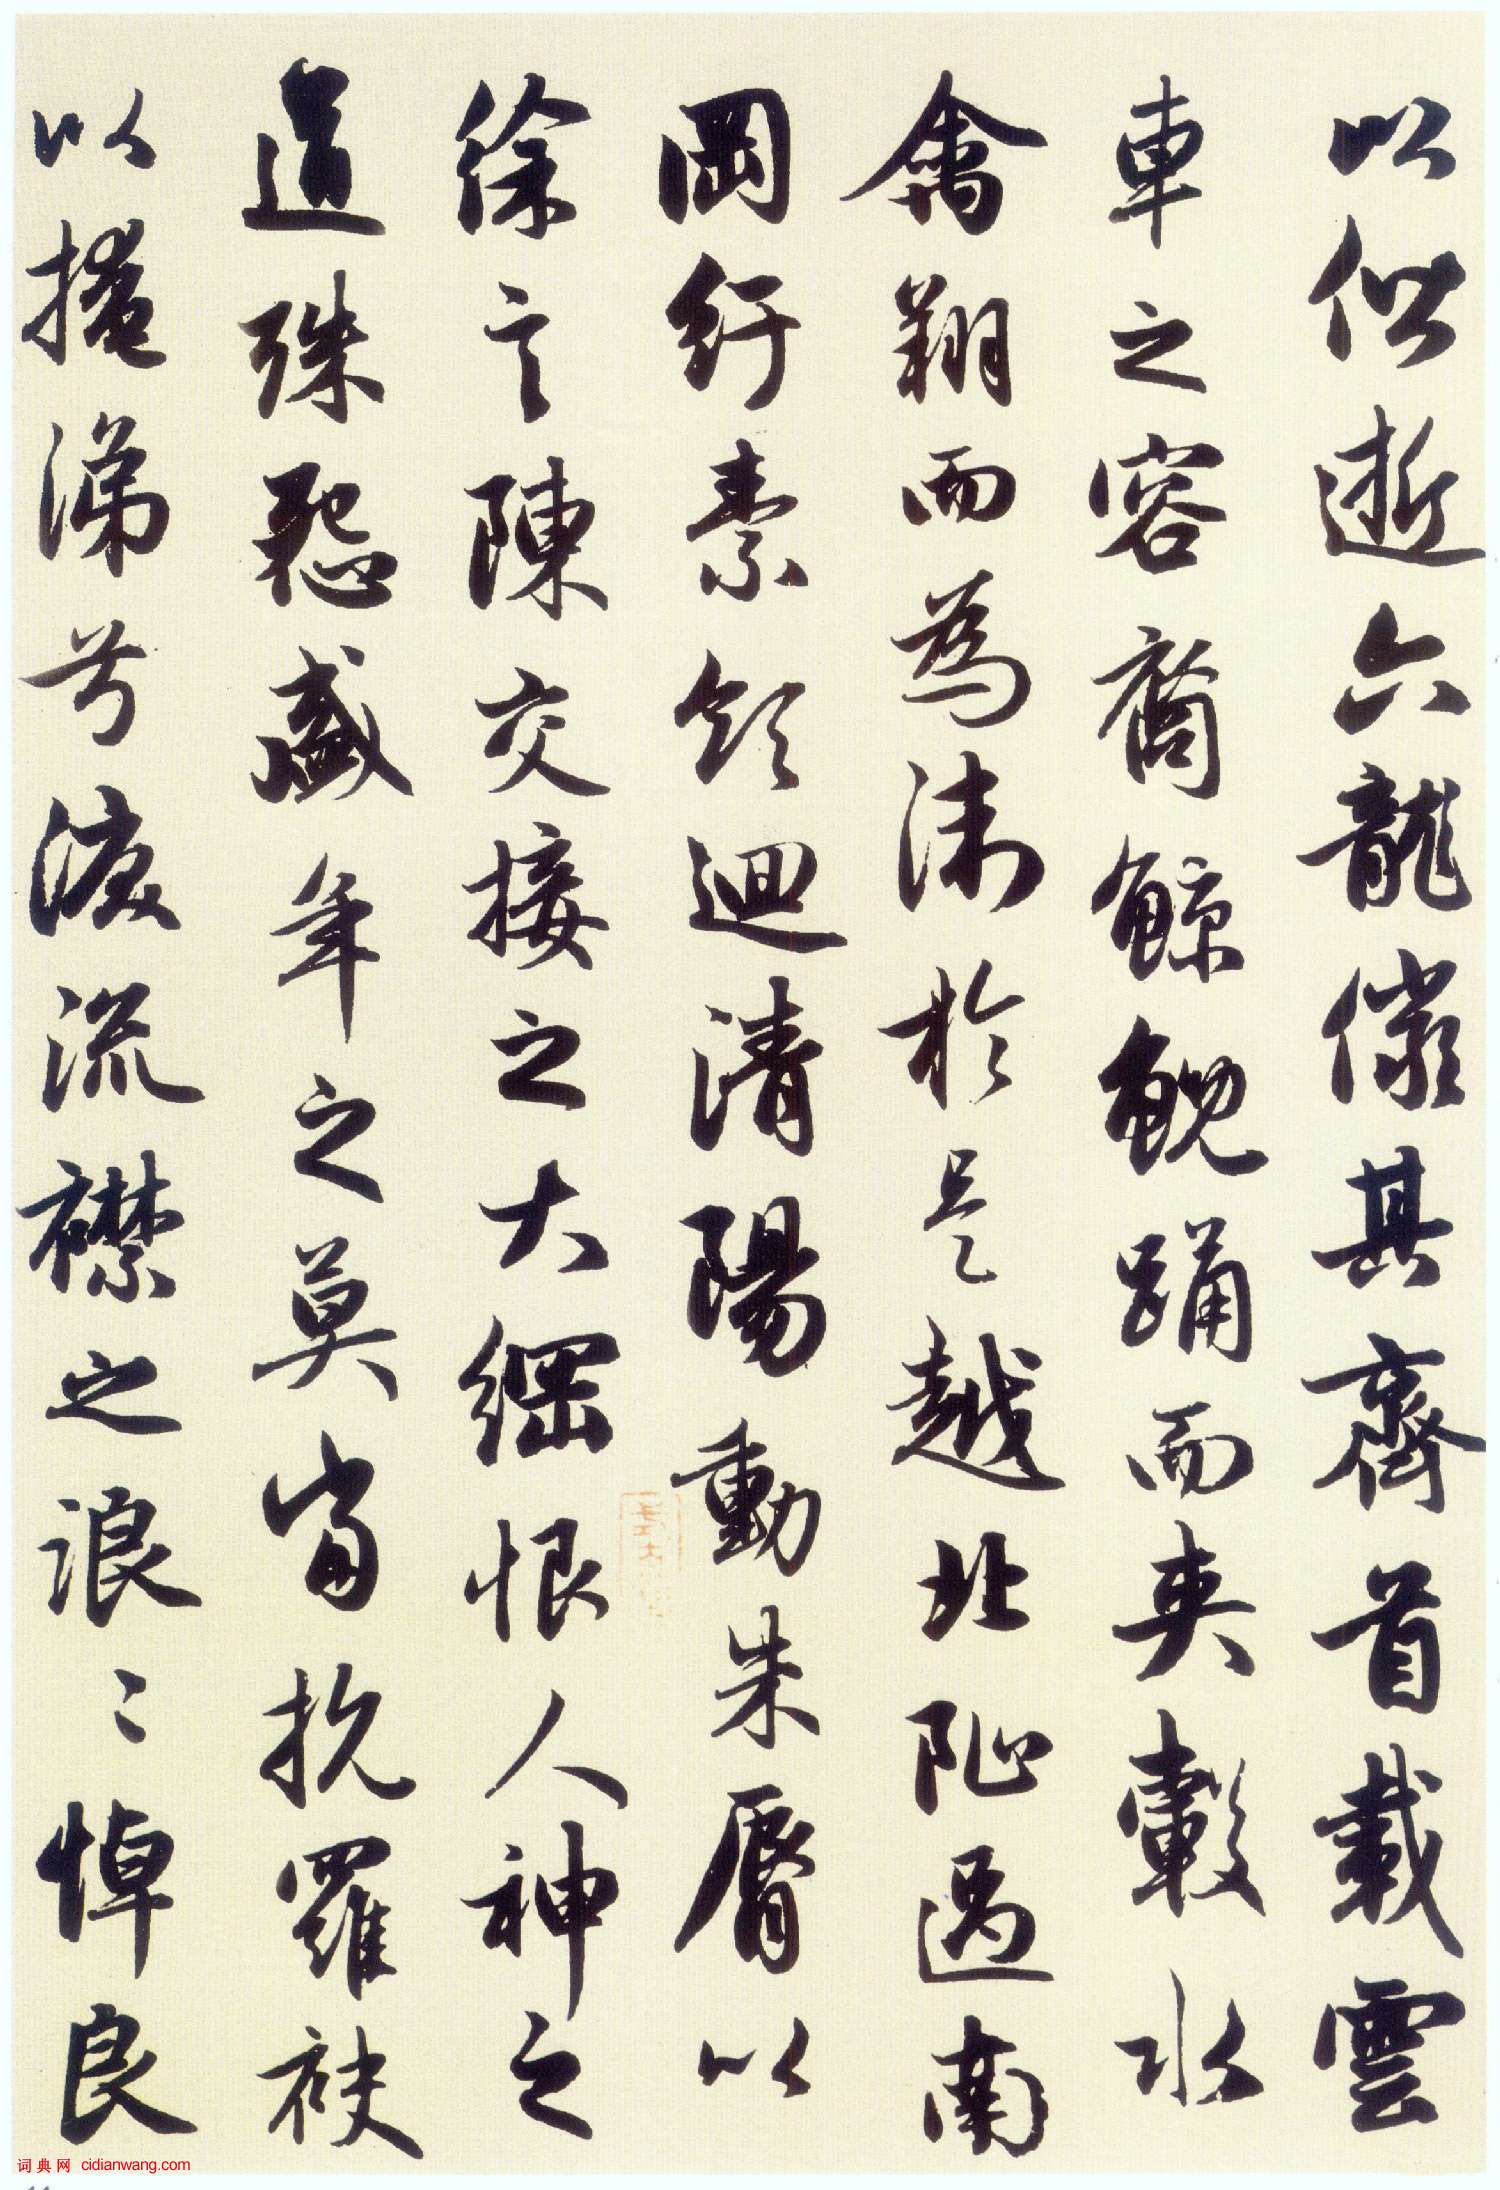 以偕逝六龍儼其齊首載雲
車之容裔鯨鯢踊而夾轂水
禽翔而為沛於是越北阯過南
岡紆素領迴清陽動朱脣以
徐言陳交接之大綱恨人神之
道殊怨盛年之莫當抗羅袂
以掩涕兮淚流襟之浪〻悼良
词典网 cidianwang.com